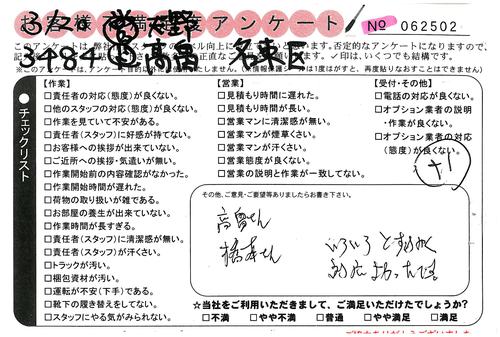 お客様満足度アンケート
3/20 営 大野
3484 高畠 名東区
No 062502
このアンケートは、弊社
います。否定的なアンケートになりますので、
✓印は、いくつでも結構です。
チェックリスト
【作業】
□責任者の対応(態度)が良くない。
□他のスタッフの対応(態度)が良くない。
□作業を見ていて不安がある。
□責任者(スタッフ)に好感が持てない。
□お客様への挨拶が出来ていない。
□ご近所への挨拶・気遣いが無い。
□作業開始前の内容確認がなかった。
□作業開始時間が遅れた。
□荷物の取り扱いが雑である。
□お部屋の養生が出来ていない。
□作業時間が長すぎる。
□責任者(スタッフ)に清潔感が無い。
□責任者(スタッフ)が汗臭い。
□トラックが汚い。
□梱包資材が汚い。
□運転が不安(下手)である。
□靴下の履き替えをしてない。
□スタッフにやる気がみられない。
【営業】
□見積もり時間に遅れた。
□見積もり時間が長い。
□営業マンに清潔感が無い。
□営業マンが煙草くさい。
□営業マンが汗くさい。
□営業態度が良くない。
□営業の説明と作業が一致してない。
【受付・その他】
□電話の対応が良くない。
□オプション業者の説明
・作業が良くない。
□オプション業者の対応
(態度)が良くない。
+1
その他、ご意見・ご要望等ありましたらお書き下さい。
高畠さん
橋本さん
いろいろと
対応よかったです
☆当社をご利用いただきまして、ご満足いただけたでしょうか?
□不満 □やや不満 □普通 □やや満足 □満足